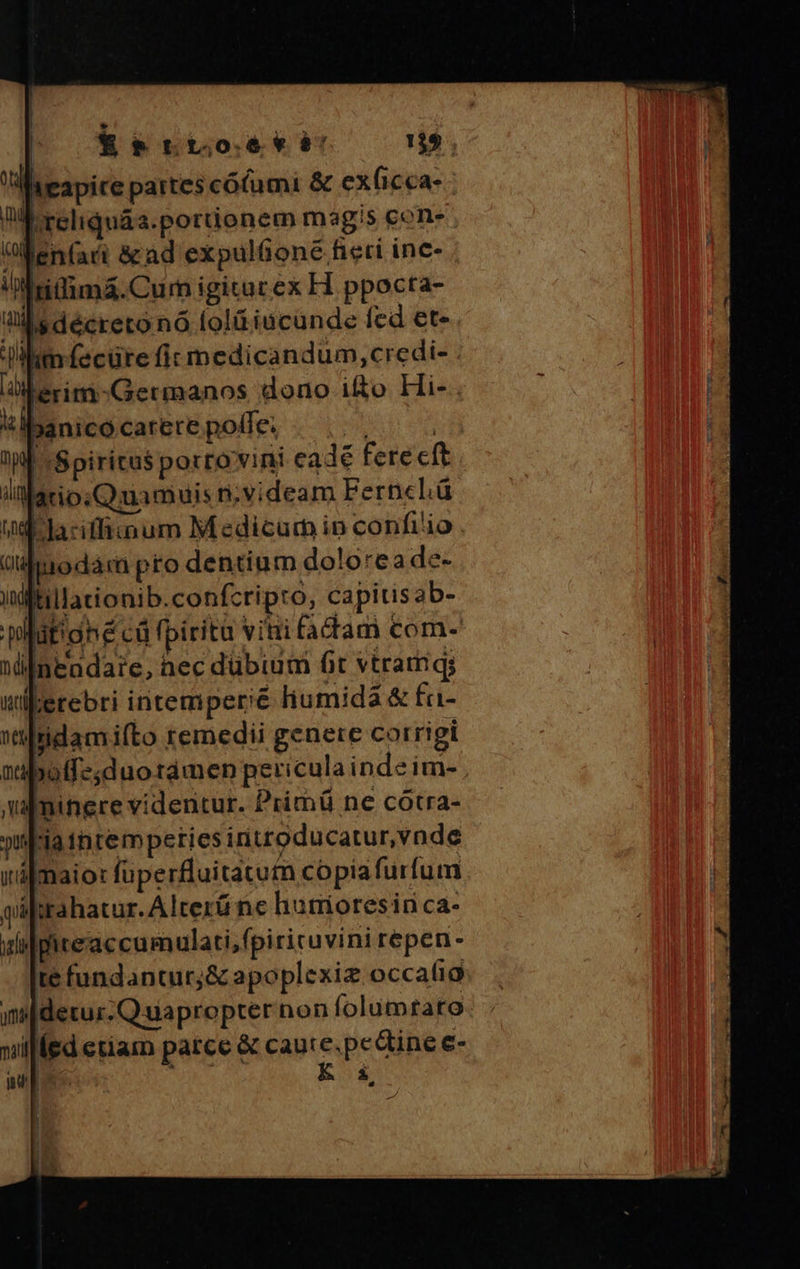 139.
capite partes cõſumi & exſicca-
reliquáa.portionem magis con-
denſari & ad expulſionẽ fieri ine-
Cum igitur ex H ppocra-
decreto nõ ſolũ iucunde ſed et-
ſecúre fit medicandum, credi-
Germanos dono iſto Hi-
panico carere poſſe.
Spiritus porro vini eadẽ fere eſt
ratio. Quamuis n. videam Fernelıũ
clariſſimum Medicum in conſilio
quodam pro dentium dolore a de-
ſtillationib. conſcripto, capitis ab-
cũ ſpiritu vini factam com-
mendare, nec dubium ſit vtramq;
cerebri intemperiẽ humidã & fri-
gidam iſto remedii genere corrigi
poſſe; duo tamen pericula inde im-
minere videntur. Primũ ne cõtra-
ria intemperies introducatur, vnde
maior ſuperfluitatum copia ſurſum
trahatur. Alterũ ne humores in ca-
pite accumulati, ſpiritu vini repen-
te fundantur; & apoplexiæ occaſio
detur. Quapropter non ſolum raro
ſed etiam parce & caute. pectine e-
K